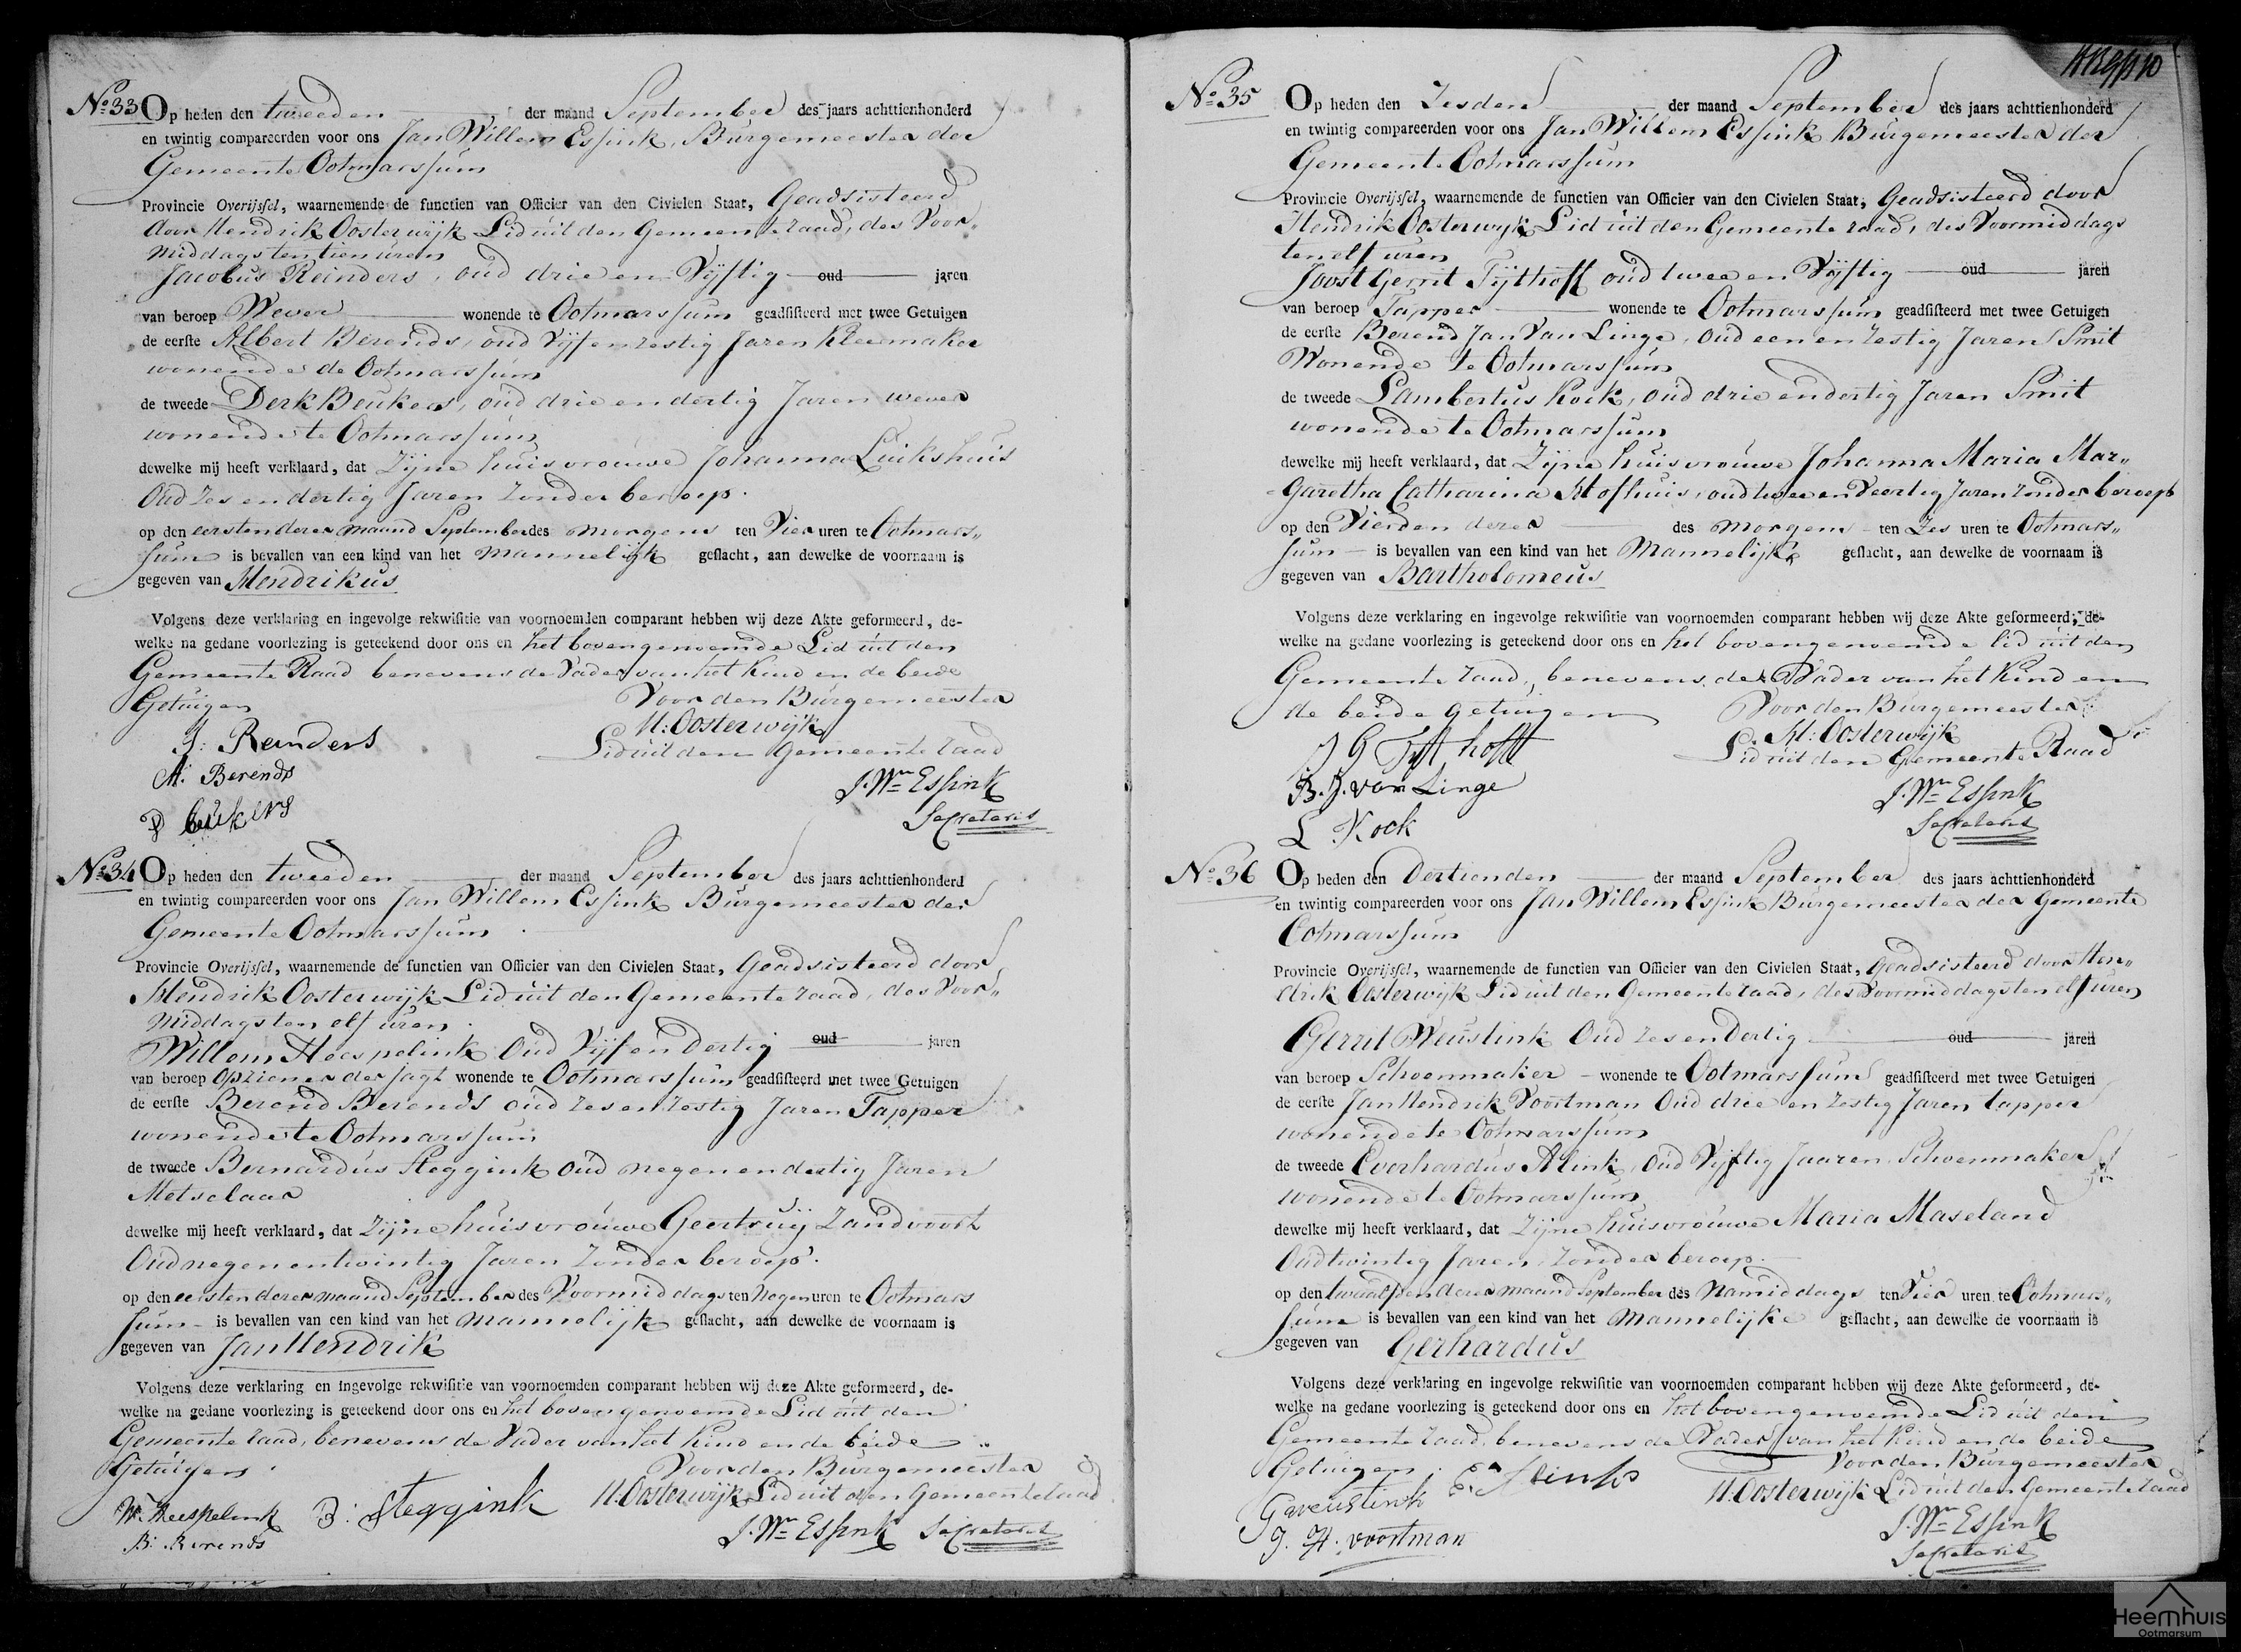 No. 33 Op heden den tweeden der maand September des jaars achttienhonderd
en twintig compareerden voor ons Jan Willem Essink, Burgemeester der
Gemeente Ootmarssum
Provincie Overijssel, waarnemende de functien van Officier van den Civielen Staat, Geadsisteerd
door Hendrik Oosterwijk Lid uit den Gemeente raad, des Voor„
middags ten tien uren
Jacobus Reinders, oud drie en Vijftig oud jaren
van beroep Wever wonende te Ootmarssum geadsisteerd met twee Getuigen
de eerste Albert Berends, oud Vijf en zestig Jaren Kleermaker
wonende de Ootmarssum
de tweede Derk Beukers, oud drie en dertig Jaren wever
wonende te Ootmarssum
dewelke mij heeft verklaard, dat Zijne huisvrouwe Johanna Luikshuis
Oud Zes en dertig Jaren Zonder beroep.
op den eersten derer maand September des morgens ten Vier uren te Ootmars„
sum is bevallen van een kind van het mannelijk geslacht, aan dewelke de voornaam is
gegeven van Hendrikus
Volgens deze verklaring en ingevolge rekwisitie van voornoemden comparant hebben wij deze Akte geformeerd, de-
welke na gedane voorlezing is geteekend door ons en het bovengenoemde Lid uit den
Gemeente Raad benevens de Vader van het Kind en de beide
Getuigen Voor den Burgemeester
J: Reinders H: Oosterwijk
Lid uit den Gemeente raad
A: Berends J. Wm Essink
D beukers Secretaris
No. 34 Op heden den tweeden der maand September des jaars achttienhonderd
en twintig compareerden voor ons Jan Willem Essink Burgemeester der
Gemeente Ootmarssum
Provincie Overijssel, waarnemende de functien van Officier van den Civielen Staat, Geadsisteerd door
Hendrik Oosterwijk Lid uit den Gemeente raad, des Voor„
middags ten elf uren
Willem Heespelink Oud Vijf en Dertig oud jaren
van beroep Opziener der Jagt wonende te Ootmarssum geadsisteerd met twee Getuigen
de eerste Berend Berends oud zes en zestig Jaren Tapper
wonende te Ootmarssum
de tweede Bernardus Steggink oud negen en dertig Jaren
Metselaar
dewelke mij heeft verklaard, dat Zijne huisvrouwe Geertruij Zandvoort
Oud negen en twintig Jaren Zonder beroep.
op den eersten derer maand September des Voormiddags ten Negen uren te Ootmars
sum is bevallen van een kind van het mannelijk geslacht, aan dewelke de voornaam is
gegeven van Jan Hendrik
Volgens deze verklaring en ingevolge rekwisitie van voornoemden comparant hebben wij deze Akte geformeerd, de-
welke na gedane voorlezing is geteekend door ons en het bovengenoemde Lid uit den
Gemeente raad, benevens de Vader van het Kind en de beide
Getuigen Voor den Burgemeester
Wm Heespelink B: Steggink H. Oosterwijk Lid uit den Gemeente raad
B: Berends J. Wm Essink Secretaris
No. 35 Op heden den Zesden der maand September des jaars achttienhonderd
en twintig compareerden voor ons Jan Willem Essink Burgemeester der
Gemeente Ootmarssum
Provincie Overijssel, waarnemende de functien van Officier van den Civielen Staat, Geadsisteerd door
Hendrik Oosterwijk Lid uit den Gemeente raad, des Voormiddags
ten elf uren
Joost Gerrit Tijthoff oud twee en Vijftig oud jaren
van beroep Tapper wonende te Ootmarssum geadsisteerd met twee Getuigen
de eerste Berend Jan Van Linge, oud een en zestig Jaren Smit
Wonende te Ootmarssum
de tweede Lambertus Kock, oud drie en dertig Jaren Smit
wonende te Ootmarssum
dewelke mij heeft verklaard, dat Zijne huisvrouwe Johanna Maria Mar„
garetha Catharina Hofhuis, oud twee en Veertig Jaren Zonder beroep
op den Vierden derer des morgens ten Zes uren te Ootmars„
sum is bevallen van een kind van het Mannelijke geslacht, aan dewelke de voornaam is
gegeven van Bartholomeus
Volgens deze verklaring en ingevolge rekwisitie van voornoemden comparant hebben wij deze Akte geformeerd, de-
welke na gedane voorlezing is geteekend door ons en het bovengenoemde lid uit den
Gemeente raad, benevens de Vader van het Kind en
de beide getuigen Voor den Burgemeester
J G Tijthoff H: Oosterwijk
Lid uit den Gemeente Raad
B. J. van Linge J. Wm Essink
L Kock Secretaris
No. 36 Op heden den Dertienden der maand September des jaars achttienhonderd
en twintig compareerden voor ons Jan Willem Essink Burgemeester der Gemeente
Ootmarssum
Provincie Overijssel, waarnemende de functien van Officier van den Civielen Staat, Geadsisteerd door Hen„
drik Oosterwijk Lid uit den Gemeente raad, des Voormiddags ten elf uren
Gerrit Weustink Oud zes en Dertig oud jaren
van beroep Schoenmaker wonende te Ootmarssum geadsisteerd met twee Getuigen
de eerste Jan Hendrik Voortman Oud drie en zestig Jaren tapper
wonende te Ootmarssum
de tweede Everhardus Alink, Oud Vijftig Jaaren Schoenmaker
wonende te Ootmarssum
dewelke mij heeft verklaard, dat Zijne huisvrouwe Maria Maseland
Oud twintig Jaren Zonder beroep.
op den twaalfden derer maand September des Namiddags ten Vier uren te Ootmars„
sum is bevallen van een kind van het mannelijke geslacht, aan dewelke de voornaam is
gegeven van Gerhardus
Volgens deze verklaring en ingevolge rekwisitie van voornoemden comparant hebben wij deze Akte geformeerd, de-
welke na gedane voorlezing is geteekend door ons en het bovengenoemde Lid uit den
Gemeente raad, benevens de Vader van het Kind en de beide
Getuigen. E: Alink Voor den Burgemeester
G weustink H. Oosterwijk Lid uit den Gemeente raad
J. H. voortman J. Wm Essink
Secretaris
Heemhuis
Ootmarsum